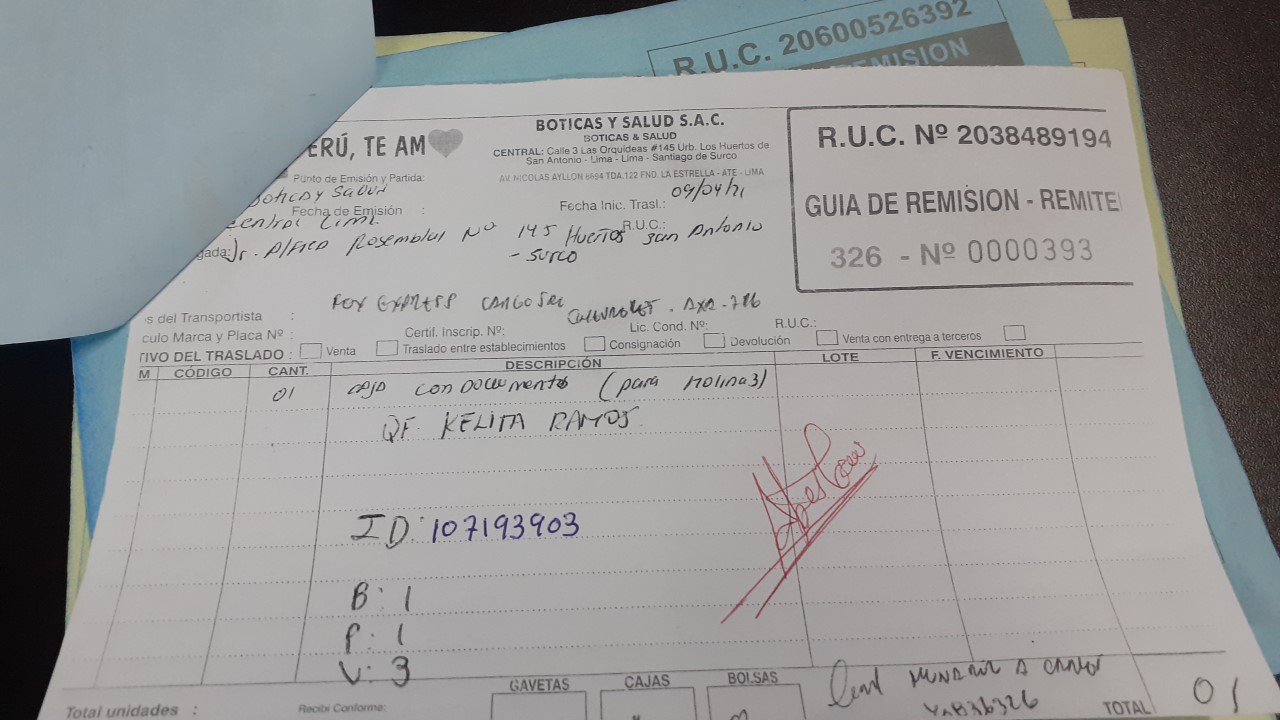 R.U.C. 20600526392
REMISION
ERÚ, TE AM
BOTICAS Y SALUD S.A.C.
BOTICAS & SALUD
CENTRAL: Calle 3 Las Orquideas #145 Urb. Los Huertos de
San Antonio - Lima - Lima - Santiago de Surco
AV. NICOLAS AYLLON TDA.122 FND. LA ESTRELLA - ATE - LIMA
R.U.C. Nº 2038489194
GUIA DE REMISION - REMITE
326 - Nº 0000393
Punto de Emisión y Partida:
oticas y Salud
Fecha de Emisión :
Fecha Inic. Trasl.: 09/04/21
Central Lima
R.U.C.:
gada: Jr. Nº 145 Huertos San Antonio
- SURCO
s del Transportista : FOX EXPRESS CARGO CHEVROLET.
culo Marca y Placa Nº :
Certif. Inscrip. Nº:
Lic. Cond. Nº:
R.U.C.:
TIVO DEL TRASLADO : Venta Traslado entre establecimientos Consignación Devolución Venta con entrega a terceros
M CÓDIGO CANT. DESCRIPCIÓN LOTE F. VENCIMIENTO
01 caja con Documentos (para Molina 3)
QF KELITA RAMOS
ID: 107193903
B: 1
P: 1
V: 3
GAVETAS CAJAS BOLSAS
Total unidades :
Recibi Conforme:
TOTAL 01